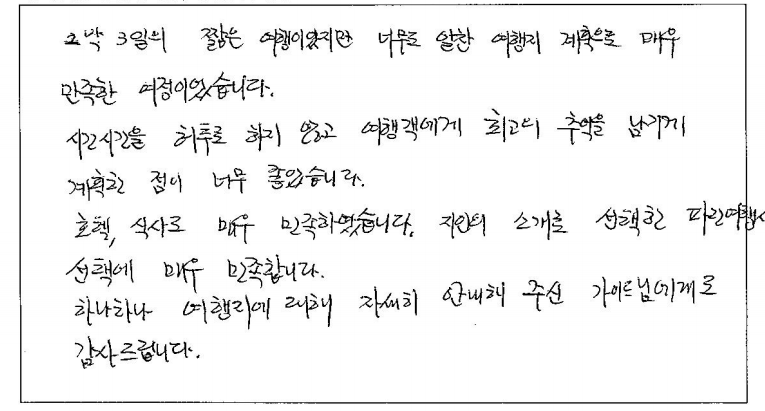 2박 3일의 짧은 여행이었지만 너무도 알찬 여행지 계획으로 매우
만족한 여정이었습니다.
시간시간을 허투로 하지 않고 여행객에게 최고의 추억을 남기게
계획한 점이 너무 좋았습니다.
호텔, 식사도 매우 만족하였습니다. 지인의 소개로 선택한 파란여행사
선택에 매우 만족합니다.
하나하나 여행지에 대해 자세히 안내해 주신 가이드님에게도
감사드립니다.